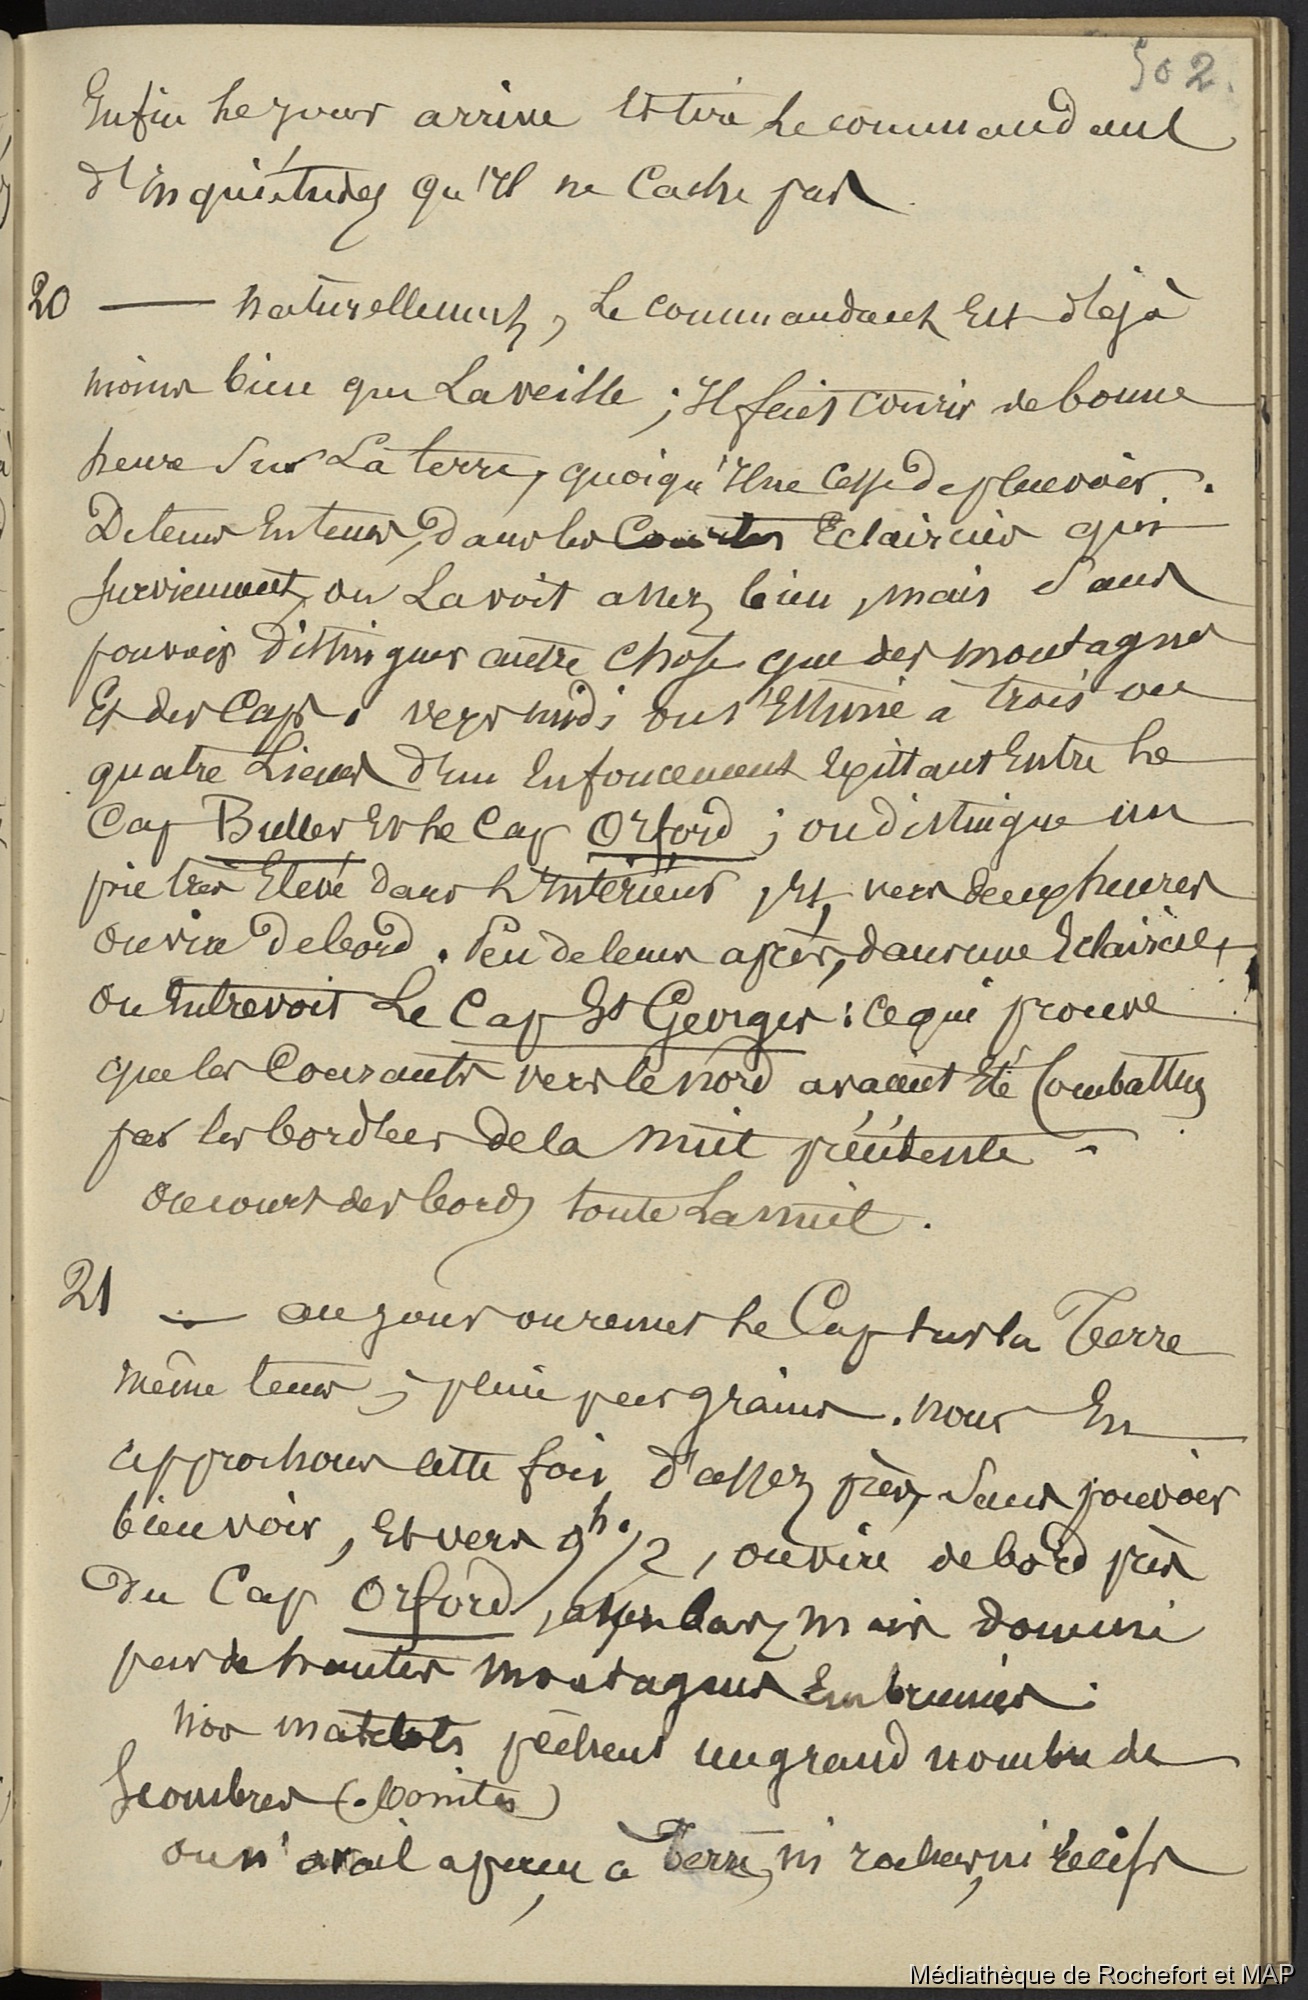 502.
Enfin le jour arrive et tire le commandant
d'inquiétudes qu'il ne cache pas
20 — naturellement, le commandant est déjà
moins bien que la veille ; il fait courir de bonne
heure sur la terre, quoiqu'il ne cesse de pleuvoir.
De tems en tems, dans les courtes éclaircies qui
surviennent, on la voit assez bien, mais sans
pouvoir distinguer autre chose que des montagnes
et des caps. vers midi on s'estime à trois ou
quatre lieues d'un enfoncement existant entre le
Cap Buller et le Cap Orford ; on distingue un
pic très élevé dans l'intérieur, et, vers deux heures
on vire de bord. Peu de tems après, dans une éclaircie,
on entrevoit le Cap St Georges : ce qui prouve
que les courants vers le nord avaient été combattus
par les bordées de la nuit précédente.
on court des bords toute la nuit.
21 — au jour on remet le Cap sur la Terre
même tems ; pluie par grains. nous en
approchons cette fois d'assez près, sans pouvoir
bien voir, et vers 9h. 1/2, on vire de bord près
du Cap Orford, assez bas, mais dominé
par de hautes montagnes embrumées.
nos matelots pêchent un grand nombre de
Scombres (bonites)
on n'avait aperçu à terre, ni rocher, ni récifs
Médiathèque de Rochefort et MAP